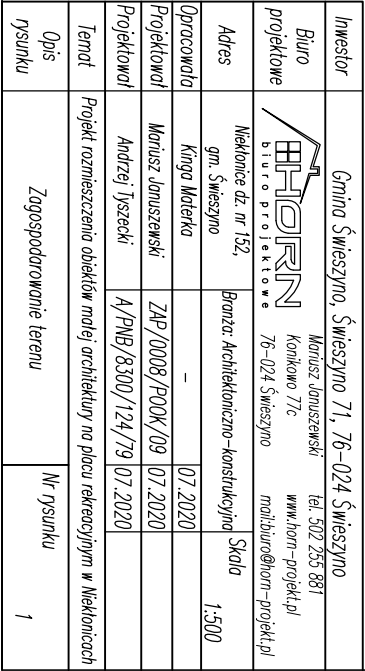 Inwestor
Gmina Świeszyno, Świeszyno 71, 76-024 Świeszyno
Biuro
projektowe
HORN
biuro projektowe
Mariusz Januszewski
Konikowo 77c
76-024 Świeszyno
tel. 502 255 881
www.horn-projekt.pl
mail:biuro@horn-projekt.pl
Adres
Niekłonice dz. nr 152,
gm. Świeszyno
Branża: Architektoniczno-konstrukcyjna
Skala
1:500
Opracowała
Kinga Materka
-
07.2020
Projektował
Mariusz Januszewski
ZAP/0008/POOK/09
07.2020
Projektował
Andrzej Tyszecki
A/PNB/8300/124/79
07.2020
Temat
Projekt rozmieszczenia obiektów małej architektury na placu rekreacyjnym w Niekłonicach
Opis
rysunku
Zagospodarowanie terenu
Nr rysunku
1